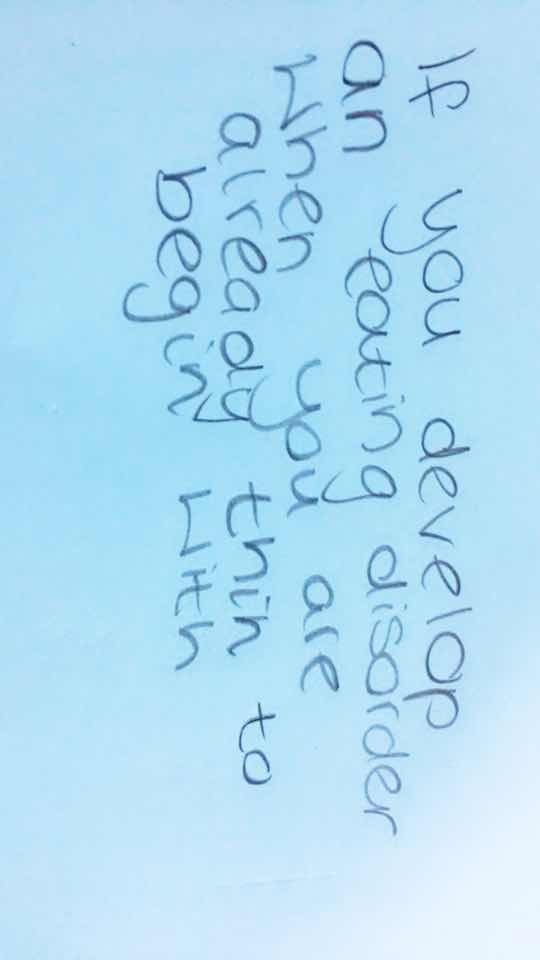 If you develop
an eating disorder
when you are
already thin to
begin with